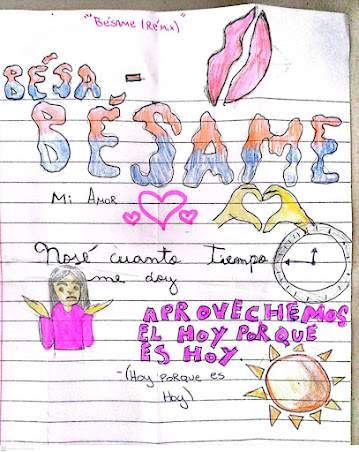 "Bésame (Rémix)"
BÉSA -
BÉSAME
Mi AMOR
Nosé cuanto tiempo
me doy
APROVECHEMOS
EL HOY PORQUE
ES HOY.
-(Hoy porque es
Hoy)